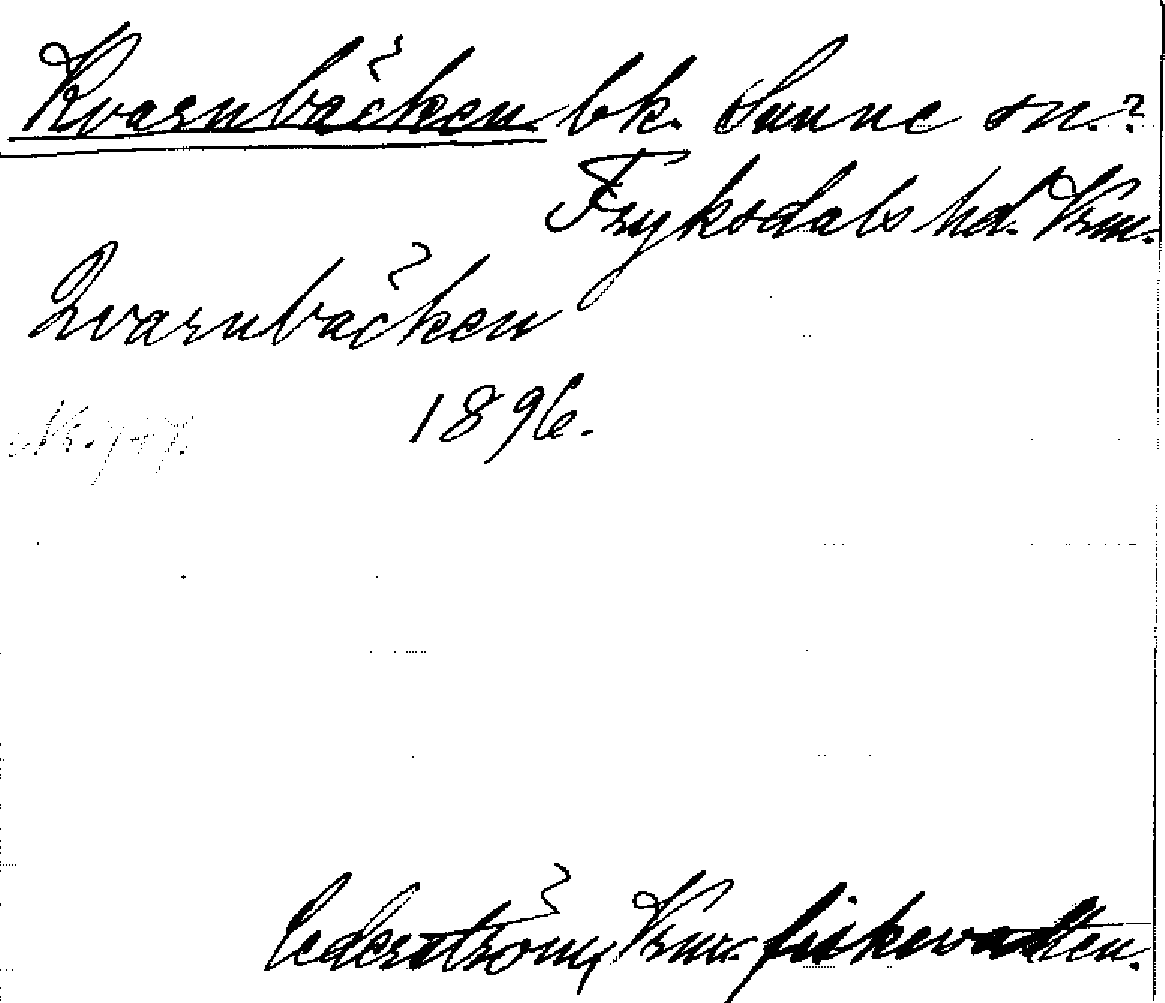 Kvarnbäcken bk. Sunne sn.?
Fryksdals hd. Vrm.
Qvarnbäcken
1896.
Cederström, Vrm. fiskevatten.